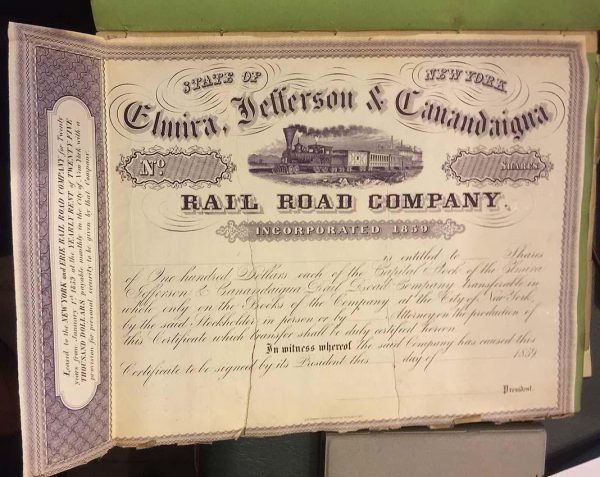 STATE OF NEW YORK
Elmira, Jefferson & Canandaigua
No.
SHARES
RAIL ROAD COMPANY.
INCORPORATED 1859
is entitled to Shares
of One hundred Dollars each of the Capital Stock of the Geneva
Jefferson & Canandaigua Rail Road Company transferable in
whole only on the Books of the Company at the City of New York,
by the said Stockholder in person or by Attorney on the production of
this Certificate which transfer shall be duly certified hereon.
In witness whereof the said Company has caused this
Certificate to be signed by its President this day of 1859
President
Leased to the NEW YORK and ERIE RAIL ROAD COMPANY for Twenty
years from January 1st 1859 at the YEARLY RENT of TWENTY FIVE
THOUSAND DOLLARS payable monthly in the City of New York with a
provision for personal security to be given by that Company.